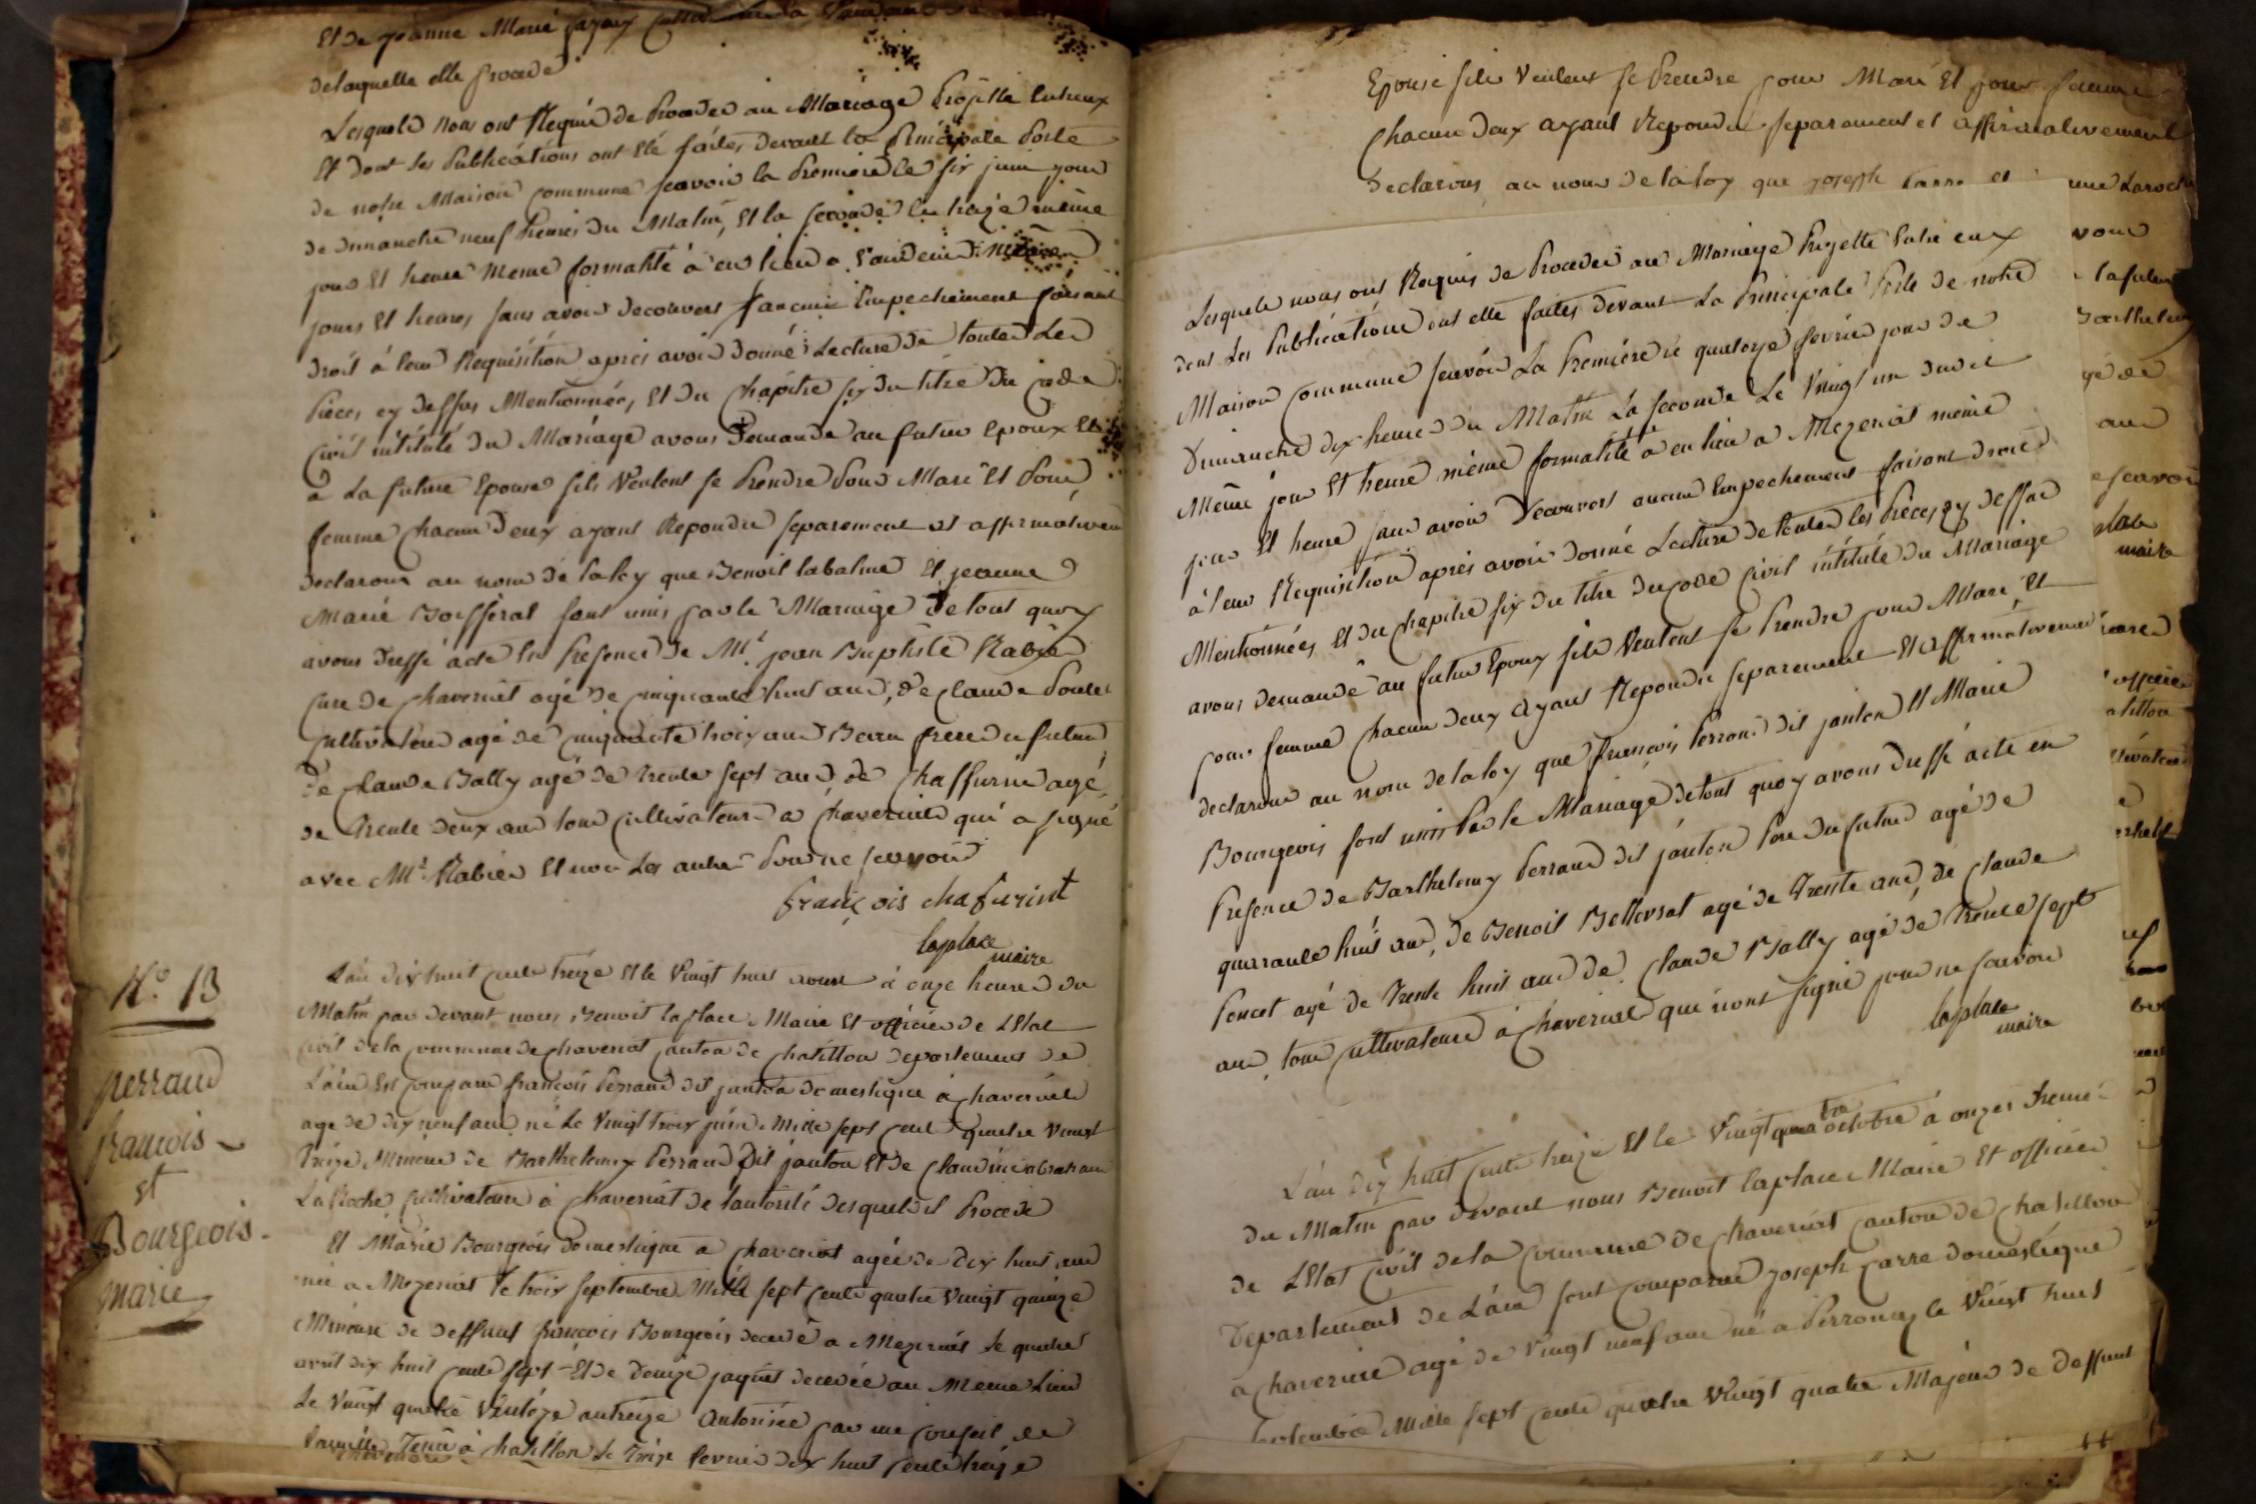 Et de jeanne Marie
delaquelle elle procede
Lesquels nous ont Requis de Proceder au Mariage Projetté Entreux
Et dont les Publications ont été faites devant la Principale Porte
de notre Maison commune scavoir la Premiere le six juin jour
de dimanche neuf heures du Matin, Et la seconde le treize même
jour Et heure Meme formalité a eu lieu a Vandeins
jours Et heures, sans avoir decouvert d'aucun Empechement faisant
droit à leur Requisition apres avoir donné Lecture de toutes Les
Pieces cy dessus Mentionnées, Et du Chapitre six du titre du Code
Civil intitulé du Mariage avons Demandé au futur Epoux Et
à La future Epouse sils Veulent se Prendre Pour Mari Et Pour
femme chacun d'eux ayant Repondu separement et affirmativem
declarons au nom de la loy que Benoit labalme Et jeanne
Marie Boisserat sont unis par le Mariage de tout quoy
avons dressé acte En Presence de Mr. jean Baptiste Rabier
Cure de chaveriat agé de cinquante huit ans, de Claude
Cultivateur agé de cinquante trois ans Beau frere du futur
de Claude Bally agé de trente sept ans, de Chaffurin agé
de trente deux ans tous Cultivateurs a chaveriat qui a signé
avec Mr. Rabier Et non Les autres Pour ne scavoir
françois chafurint
laplace
maire
N.o 13
perraud
francois
et
Bourgeois
marie
L'an dix huit cents treize Et le Vingt huit avril à onze heures du
Matin par devant nous Benoit laplace Maire Et officier de L'Etat
Civil de la commune de chaveriat canton de chatillon departement de
L'ain Est comparu françois Perraud dit janton domestique a chaveriat
age de dix neuf ans né Le Vingt trois juin Mille sept cent quatre vingt
treize Mineur de Barthelemy Perraud Dit janton Et de Claudine
LaRoche Cultivateurs à chaveriat de l'autorité desquels il Procede
Et Marie Bourgeois domestique a chaveriat agée de dix huit ans
née a Mezeriat le trois septembre Mille sept cents quatre Vingt quinze
Mineure de deffunt françois Bourgeois decedé a Mezeriat le quatre
avril dix huit cents sept Et de Denize jaquet decedée au Meme Lieu
Le Vingt quatre Ventoze an treize Autorisée par un Conseil de
famille Tenu à chatillon le treize fevrier dix huit cents treize
Epouse sils Veulent se Prendre pour Mari Et pour femme
chacun deux ayant Repondu separement et affirmativement
declarons au nom de la loy que joseph
Lesquels nous ont Requis de Proceder au Mariage Projetté Entre eux
dont Les Publications ont etté faites devant La Principale Porte de notre
Maison commune scavoir La Premiere le quatorze fevrier jour de
Dimanche dix heures du Matin La seconde Le Vingt un dudit
Même jour Et heure même formalité a eu lieu a Mezeriat même
jour Et heure sans avoir decouvert aucun Empechement faisant droit
à leur Requisition apres avoir donné Lecture de toutes les Pieces cy dessus
Mentionnées Et du chapitre six du titre du Code Civil intitulé du Mariage
avons demandé au futur Epoux sils Veulent se Prendre pour Mari, Et
pour femme chacun deux ayant Repondu separement Et affirmativement
declarons au nom de la loy que françois Perraud dit janton Et Marie
Bourgeois sont unis Par le Mariage de tout quoy avons dressé acte en
Presence de Barthelemy Perraud dit janton Pere du futur agé de
quarante huit ans, de Benoit agé de Trente ans, de Claude
Poncet agé de Trente huit ans de Claude Bally agé de Trente sept
ans, tous cultivateurs à chaveriat qui n'ont signé pour ne scavoir
laplace
maire
L'an dix huit cents treize Et le Vingt quatre octobre à onzes heures
du Matin par devant nous Benoit laplace Maire Et officier
de L'Etat Civil de la Commune de chaveriat canton de chatillon
Departement de L'ain sont comparus joseph Carre domestique
a chaveriat agé de Vingt neuf ans né a Perronnas le Vingt huit
septembre Mille sept cents quatre Vingt quatre Majeur de Deffunt